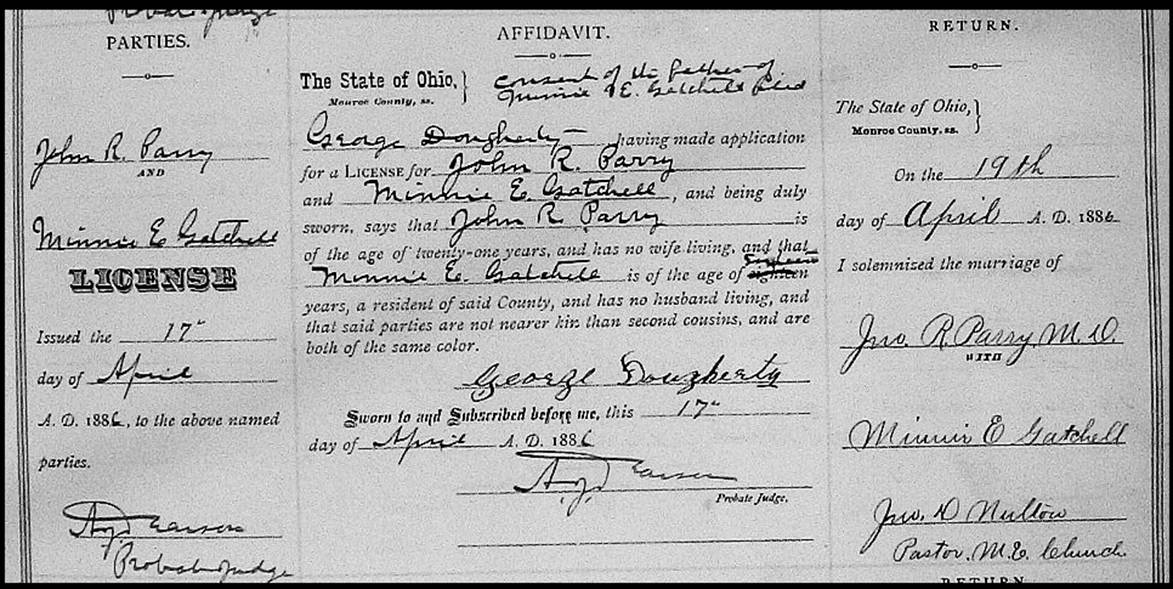 PARTIES.
John R. Parry
AND
Minnie E Gatchell
LICENSE
Issued the 17"
day of April
A. D. 1886, to the above named
parties.
Probate Judge
AFFIDAVIT.
The State of Ohio,
Monroe County, ss.
Consent of the father of
Minnie E. Gatchell filed
George Dougherty having made application
for a LICENSE for John R. Parry
and Minnie E. Gatchell, and being duly
sworn, says that John R. Parry is
of the age of twenty-one years, and has no wife living, and that
Minnie E. Gatchell is of the age of eighteen
years, a resident of said County, and has no husband living, and
that said parties are not nearer kin than second cousins, and are
both of the same color.
George Dougherty
Sworn to and Subscribed before me, this 17"
day of April A. D. 1886
Probate Judge.
RETURN.
The State of Ohio,
Monroe County, ss.
On the 19th
day of April A. D. 1886
I solemnized the marriage of
Jno. R. Parry, M. D.
WITH
Minnie E Gatchell
Jno. D
Pastor. M. E. Church.
RETURN